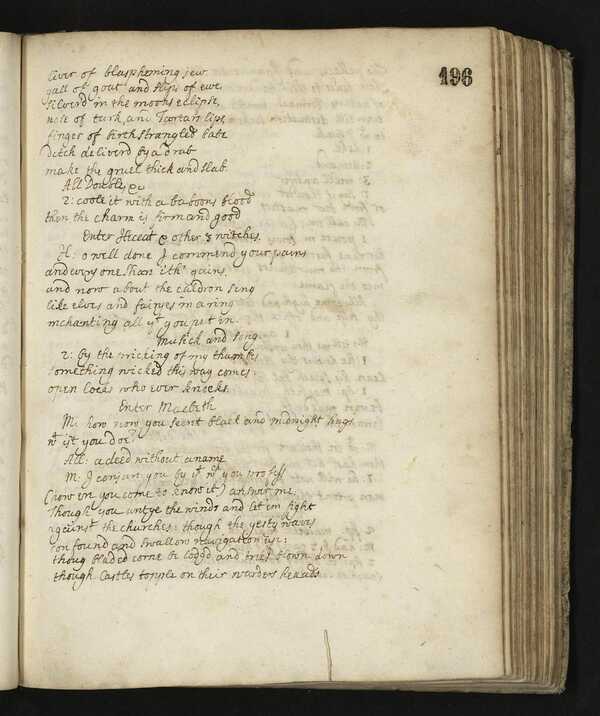 196
liver of blaspheming jew
gall of goat and slips of ewe
silverd in the moons eclipse,
nose of turk, and Tartars lips
finger of birth strangled babe
Ditch deliverd by a drab
make the gruel thick and slab.
All Double, &c
2: coole it with a baboons blood
then the charm is firm and good
Enter Hiccat & other 3 witches.
H: o well done I commend your pains
and every one shan ith' gains,
and now about the caldron sing
like elves and fairyes in a ring
inchanting all yt you put in.
Musick and song.
2: by the pricking of my thumbes
something wicked this way comes:
open locks who ever knocks.
Enter Macbeth
M: how now you secret black and midnight hags
wt ist you doe?
All: a deed without a name
M: I conjure you by yt wt you profess
(how ere you come to know it) answer me.
Though you untye the winds and let em fight
against the churches: though the yesty waves
confound and swallow navigation up:
thoug bladed corne be lodgd and trees blown down
though Castles topple on their warders heads